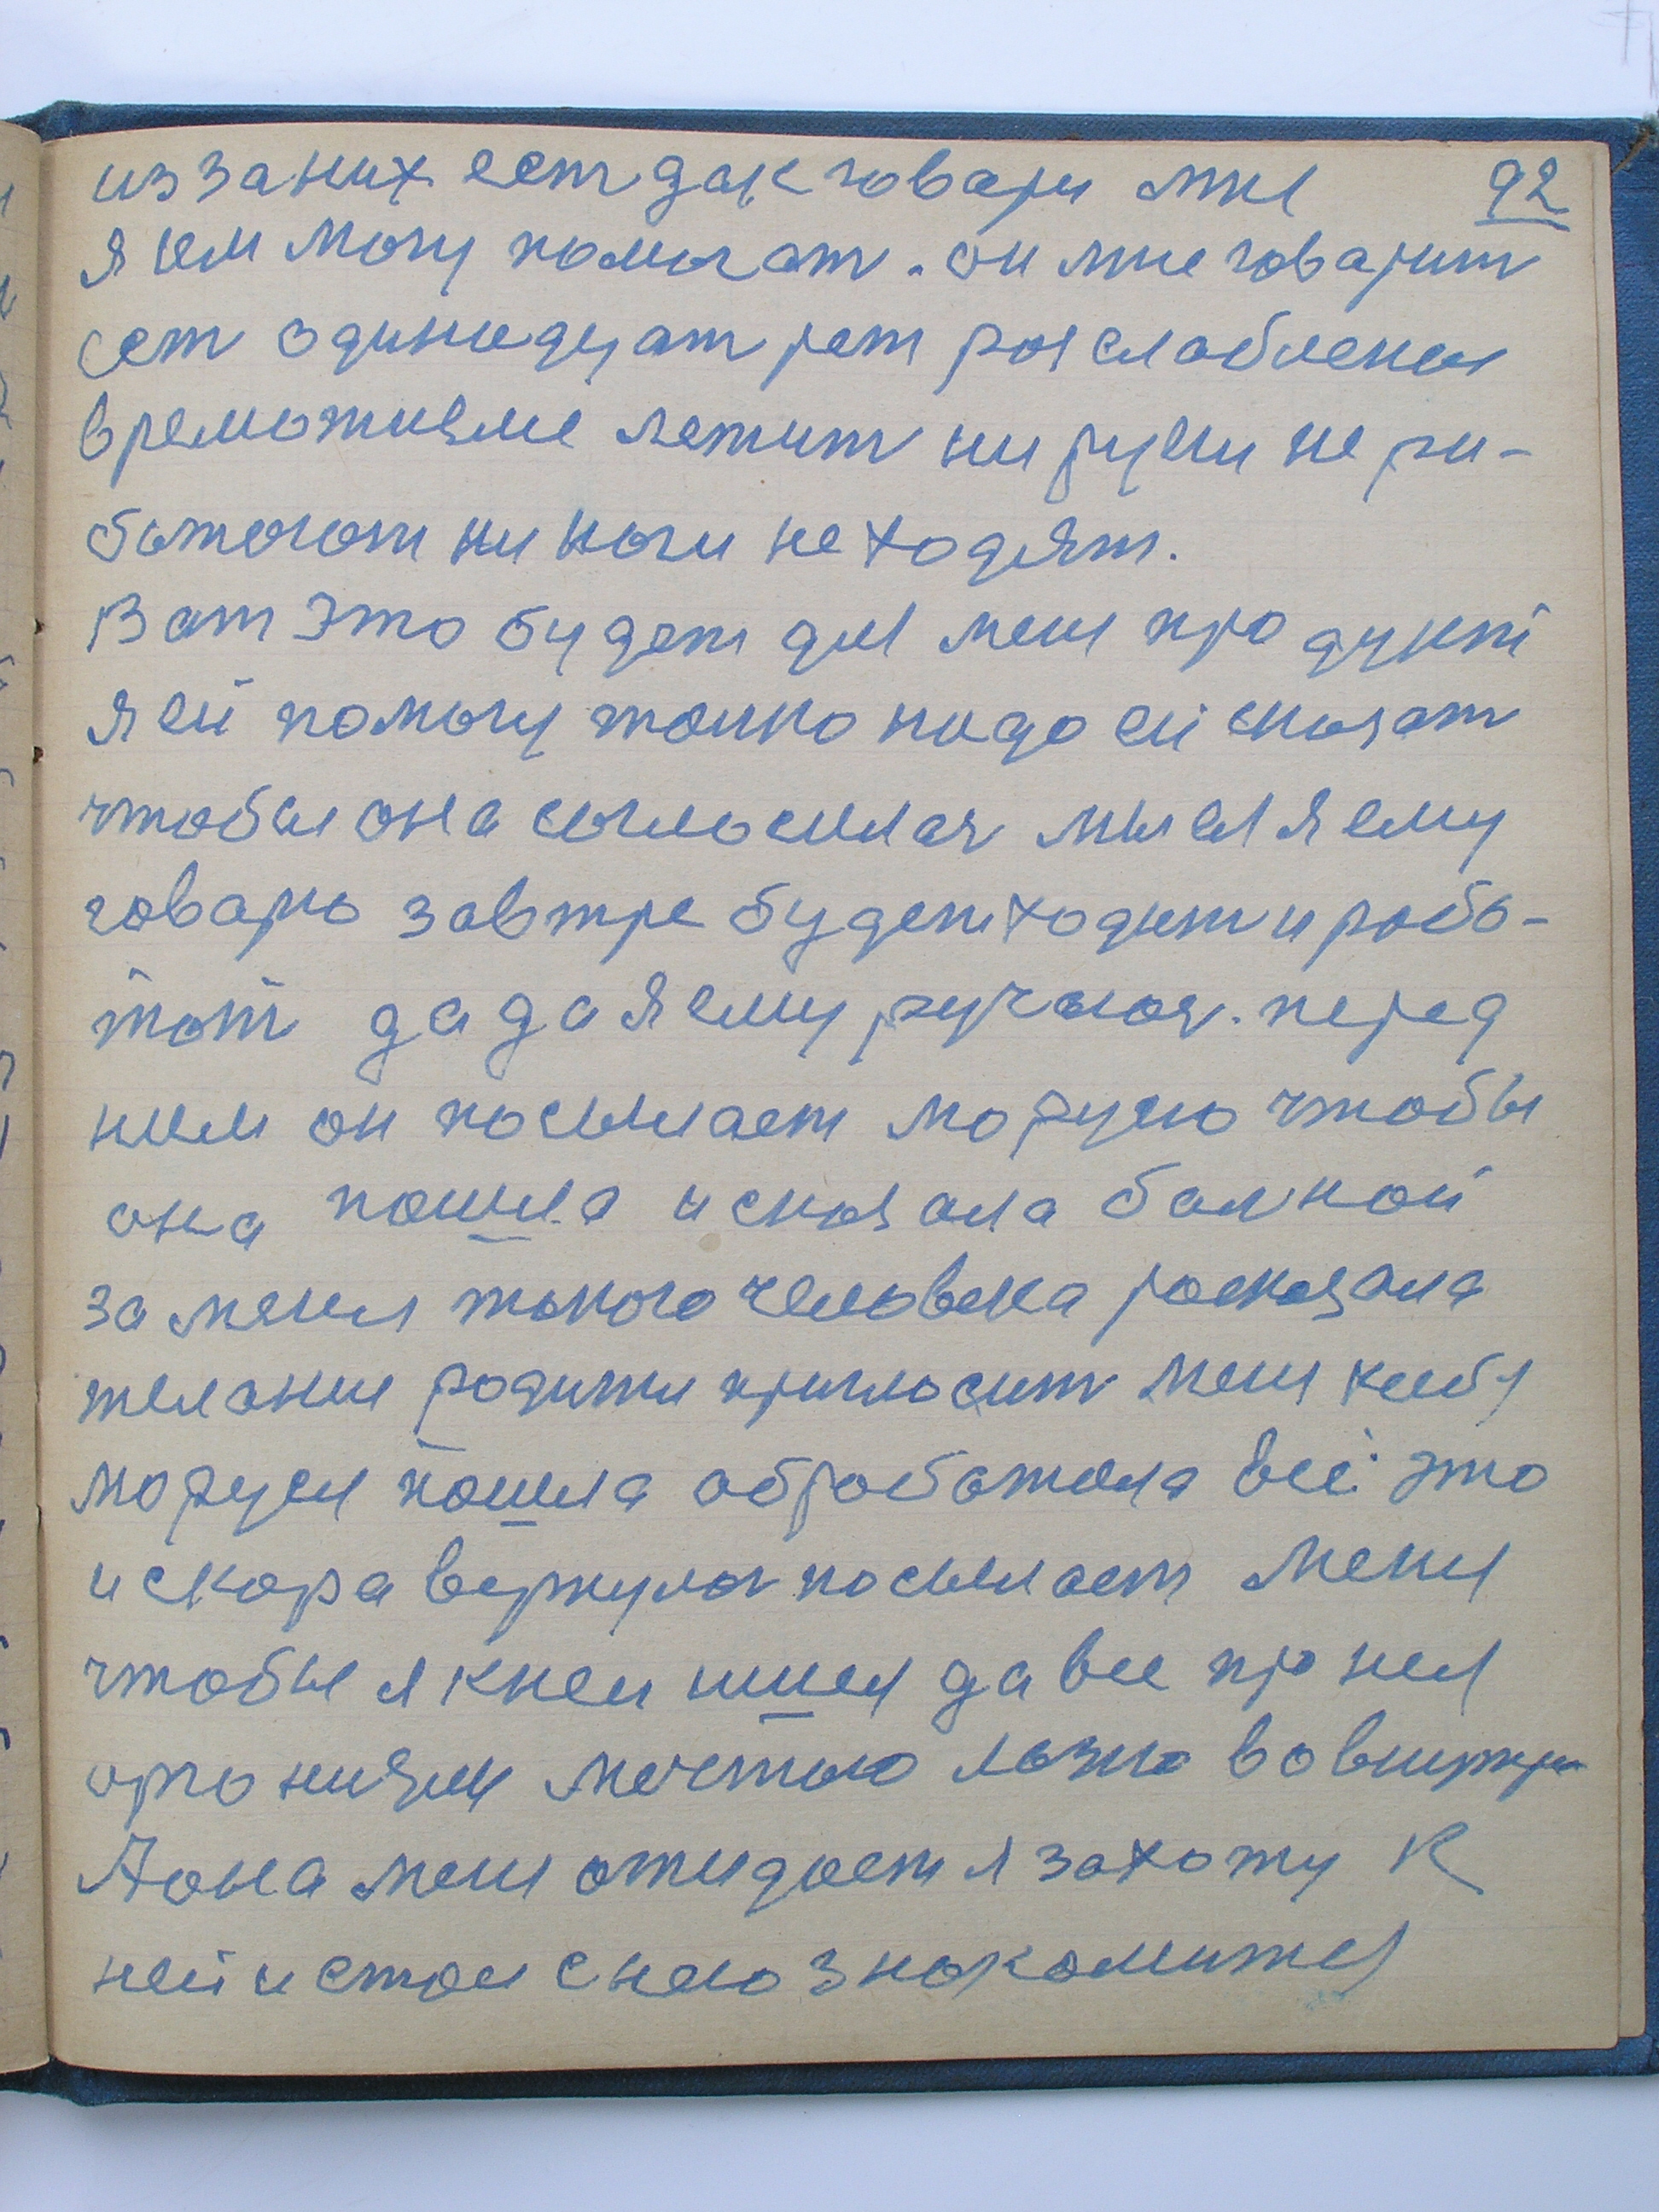 из за них ест дак говари мне 92
я им могу помогат. он мне говарит
ест одинацат лет росслаблена
в ремотизме лежит ни руки не ра-
ботают ни ноги не ходят.
Вот это будет для меня продукт
я ей помогу толко надо ей сказат
чтобы она согласилас мы ея я ему
говарю завтре будет ходит и рабо-
тат да да я ему ручаюс. перед
ним он посылает марусю чтобы
она пошла и сказала болной
за меня такого человека росказала
желания родити пригласит меня к себя
маруся пошла обработала всё это
и скора вернулас посылает меня
чтобы я к ней шшел да все про нея
организм мечтаю лазию во внутри
А она меня ожидает я захожу к
ней и стал с нею знакомится